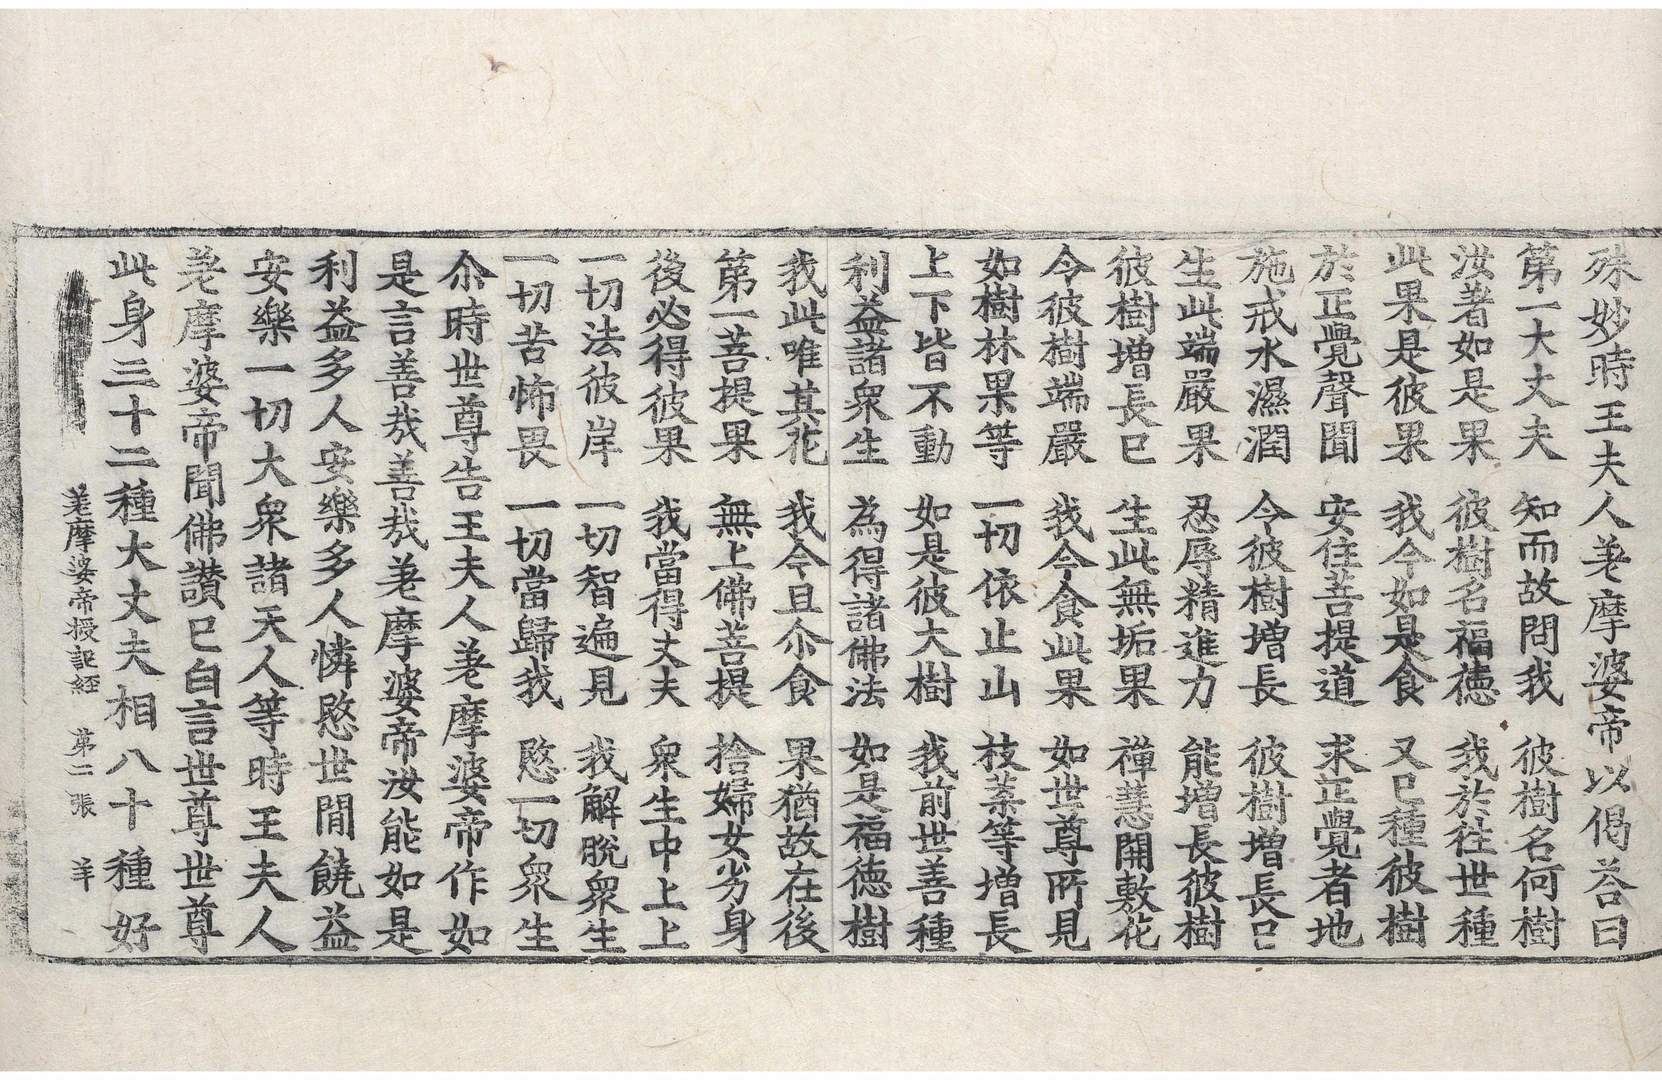 殊妙時王夫人差摩婆帝以偈荅曰
第一大丈夫 知而故問我 彼樹名何樹
汝著如是果 彼樹名福德 我於往世種
此果是彼果 我今如是食 又已種彼樹
於正覺聲聞 安住菩提道 求正覺者地
施戒水濕潤 今彼樹增長 彼樹增長已
生此端嚴果 忍辱精進力 能增長彼樹
彼樹增長已 生此無垢果 禪慧開敷花
今彼樹端嚴 我今食此果 如世尊所見
如樹林果等 一切依止山 枝葉等增長
上下皆不動 如是彼大樹 我前世善種
利益諸衆生 為得諸佛法 如是福德樹
我此唯其花 我今且尒食 果猶故在後
第一菩提果 無上佛菩提 捨婦女劣身
後必得彼果 我當得丈夫 衆生中上上
一切法彼岸 一切智遍見 我解脫衆生
一切苦怖畏 一切當歸我 愍一切衆生
尒時世尊告王夫人差摩婆帝作如
是言善哉善哉差摩婆帝汝能如是
利益多人安樂多人憐愍世間饒益
安樂一切大衆諸天人等時王夫人
差摩婆帝聞佛讚已白言世尊世尊
此身三十二種大丈夫相八十種好
差摩婆帝授記經 第二張 羊